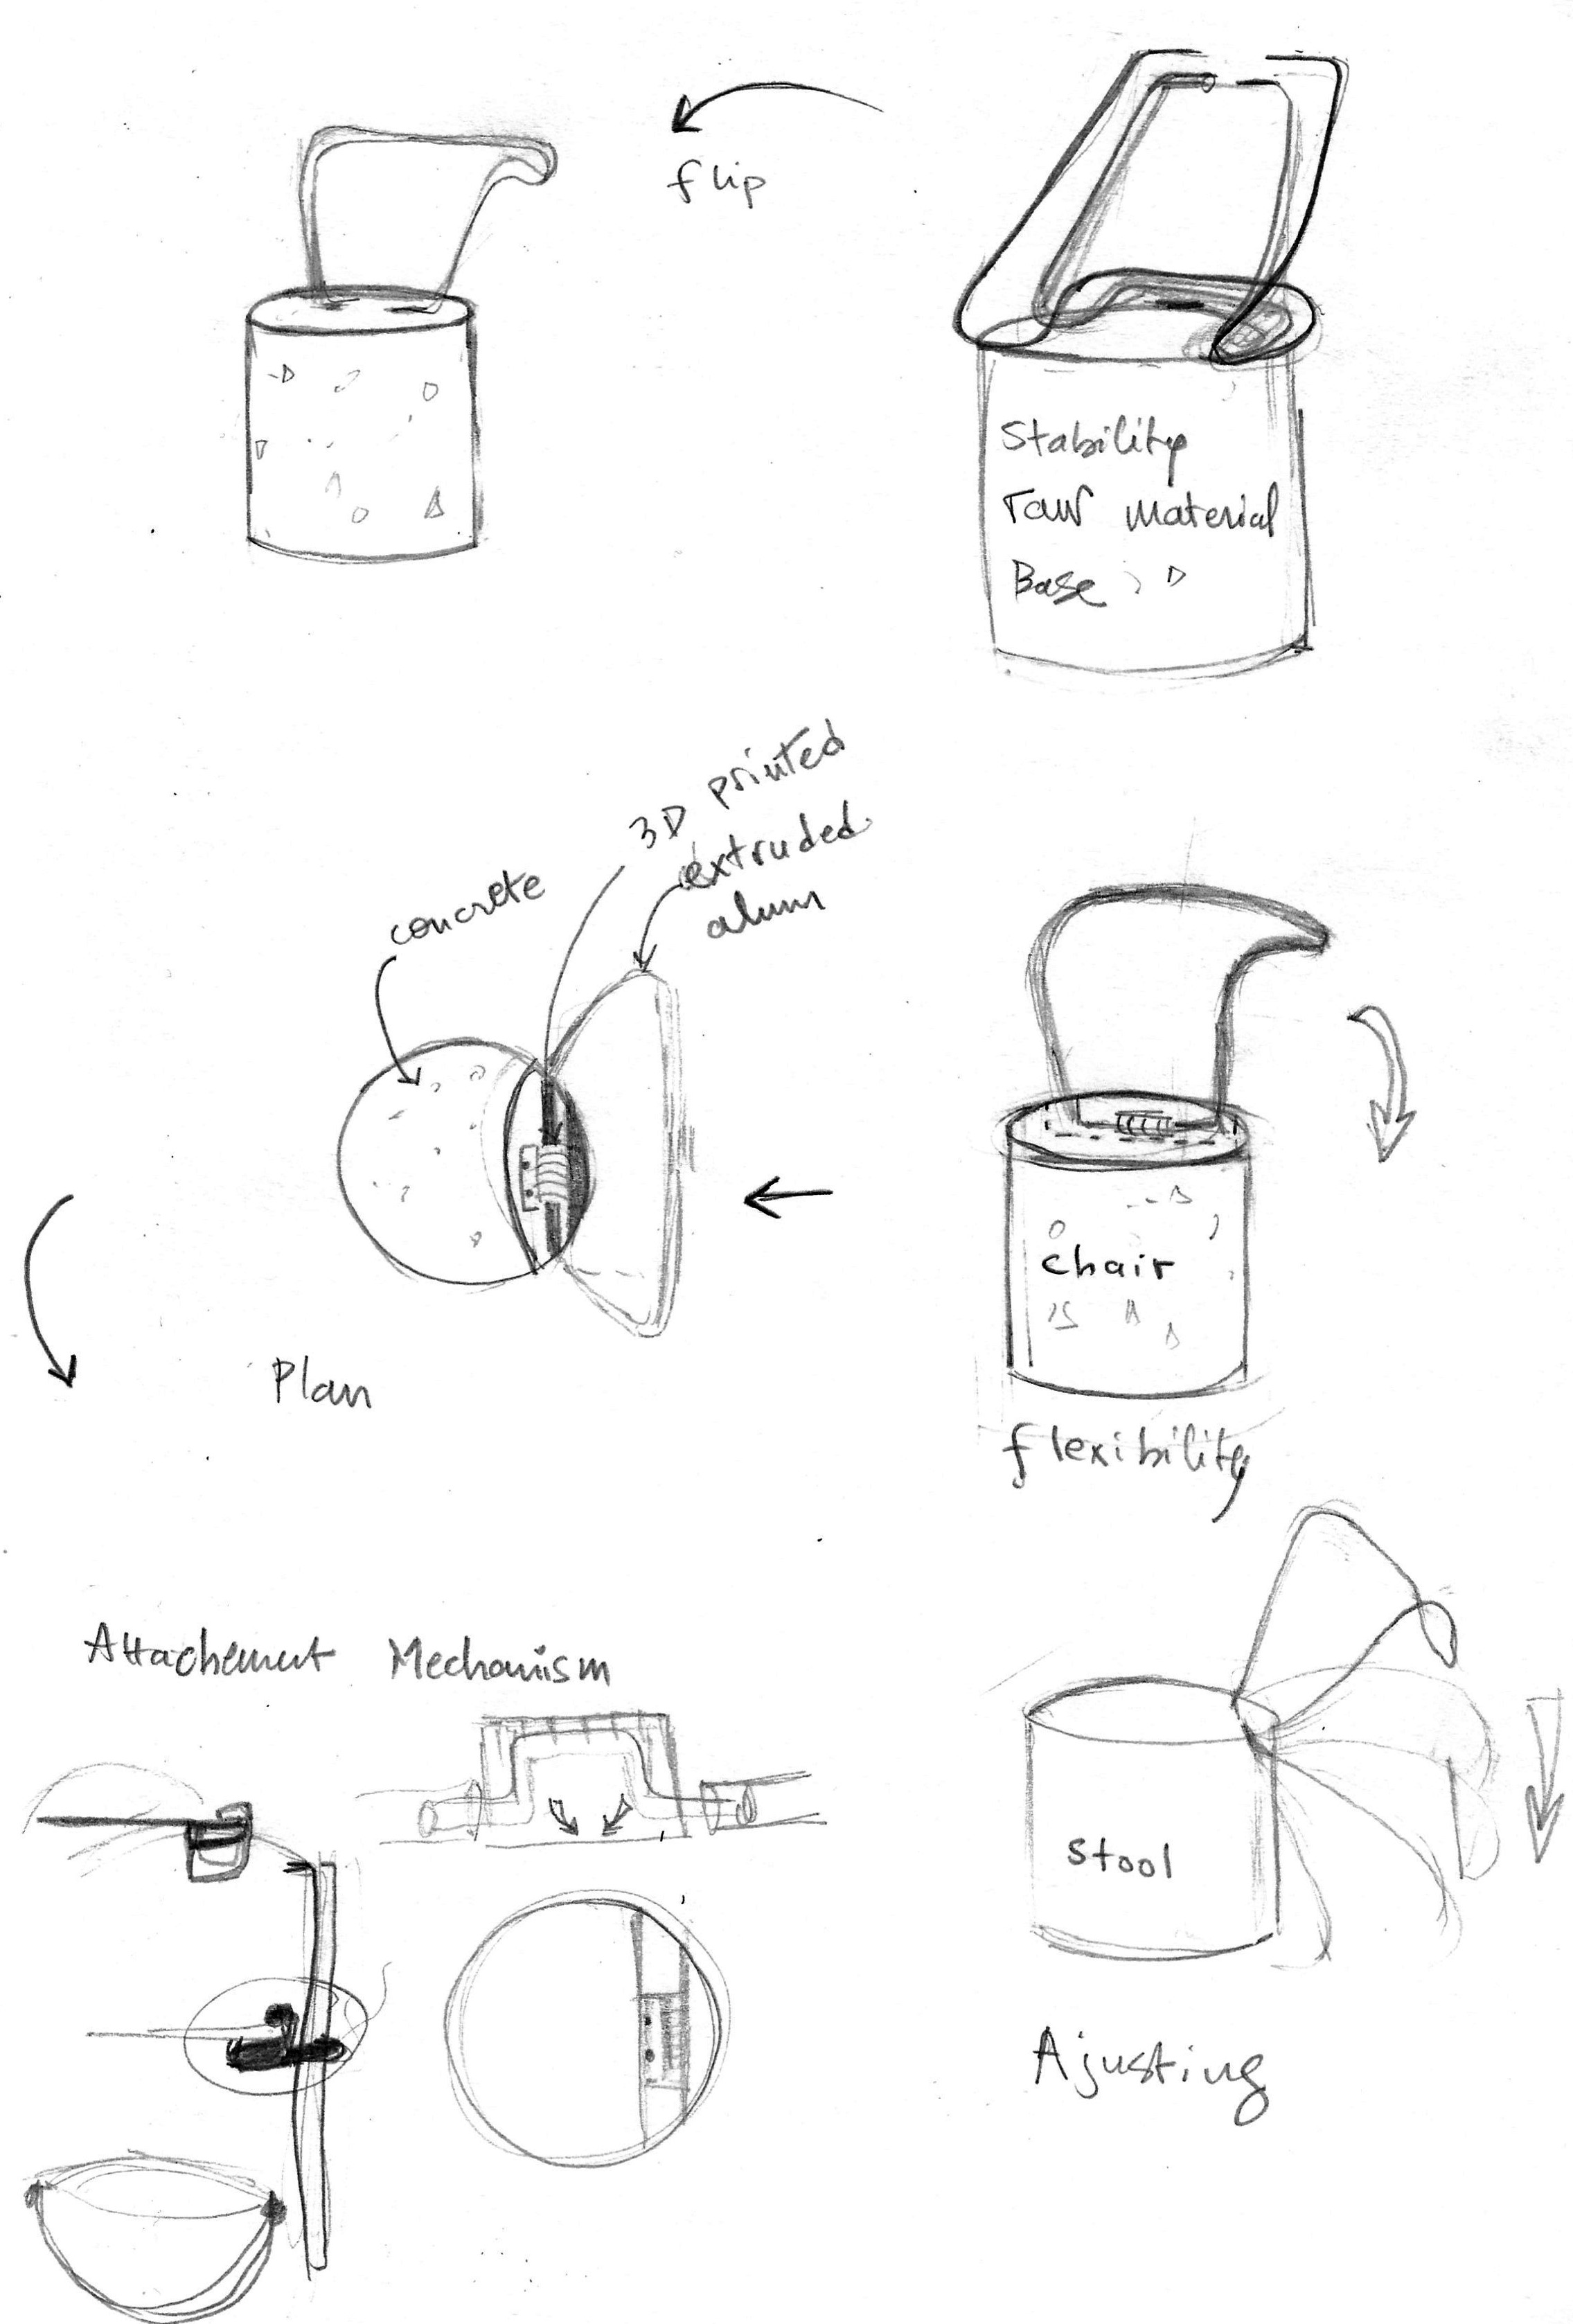 flip
Stability
raw material
Base
3D printed
extruded
alum
concrete
Plan
chair
flexibility
Attachement Mechanism
stool
Ajusting